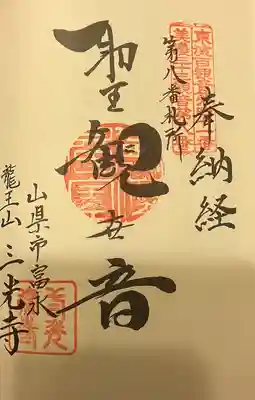 奉納経
第八番札所
聖観世音
山県市富永
龍王山三光寺